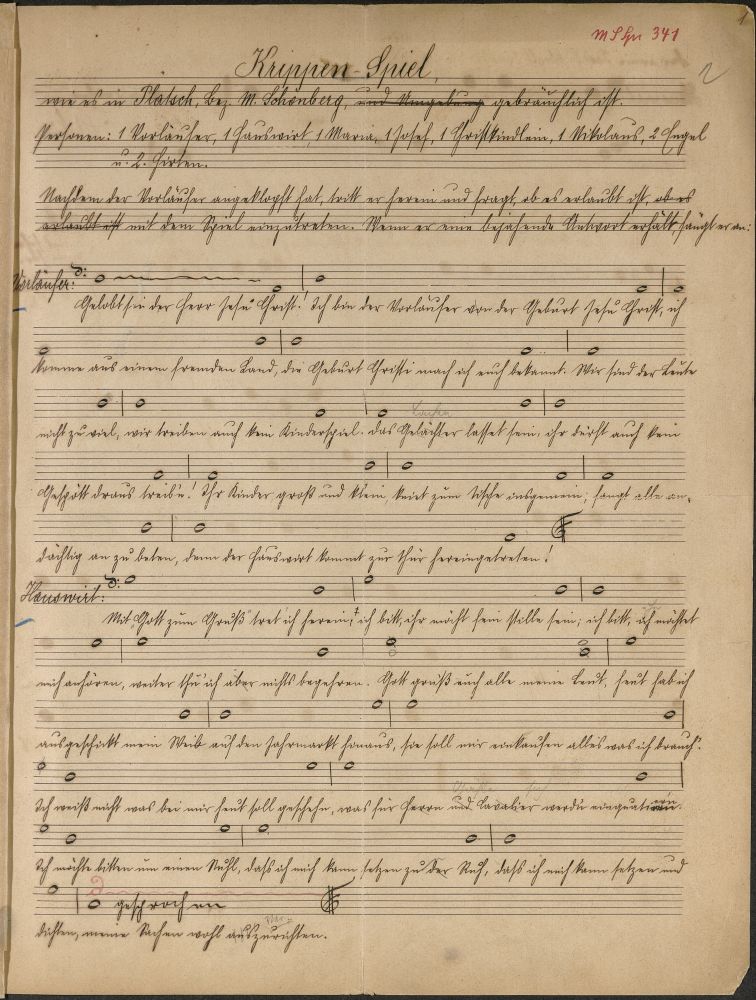 1
MS Gu 341
2
Krippen-Spiel,
wie es in Platsch, Bez. M. Schönberg, und Umgebung gebräuchlich ist.
Personen: 1 Vorläufer, 1 Hauswirt, 1 Maria, 1 Josef, 1 Christkindlein, 1 Nikolaus, 2 Engel
u. 2. Hirten.
Nachdem der Vorläufer angeklopft hat, tritt er herein und fragt, ob es erlaubt ist, ob es
erlaubt ist mit dem Spiel einzutreten. Wenn er eine bejahende Antwort erhält, fängt er an:
Vorläufer:
Gelobt sei der Herr Jesu Christ! Ich bin der Vorläufer von der Geburt Jesu Christ, ich
komme aus einem fremden Land, die Geburt Christi mach ich euch bekannt. Wir sind der Leute
nicht zu viel, wir treiben auch kein Kinderspiel. das Gelächter lasset sein, ihr derft auch kein
Lachen
Gespött draus treib'n! Ihr Kinder groß und klein, kniet zum Tische insgemein; fangt alle an-
dächtig an zu beten, denn der Hauswirt kommt zur Thür hereingetreten!
Hauswirt:
Mit "Gott zum Gruß" tret' ich herein, ich bitt, ihr möcht fein stille sein; ich bitt, ihr möchtet
mich anhören, weiter thu' ich aber nichts begehren. Gott grüß euch alle meine Leut', heut hab ich
ausgeschickt mein Weib auf den Jahrmarkt hinaus, sie soll mir einkaufen alles was ich brauch'.
Ich weiß nicht was bei mir heut soll geschehn, was für Herrn und Cavalier werdn
Ich möchte bitten um einen Stuhl, dass ich mich kann setzen zu der Ruh, dass ich mich kann setzen und
gesprochen
dichten, meine Sachen wohl auszurichten.